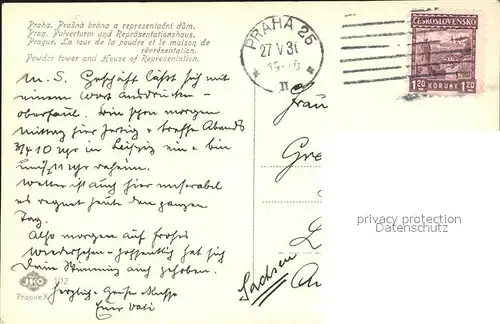 Praha. Prašná brána a representační dům.
Prag. Pulverturm und Repräsentationshaus.
Prague. La tour de la poudre et le maison de
réprésentation.
Powder tower and House of Representation.
PRAHA 25
27 V 31
II
ČESKOSLOVENSKO
1·20 KORUNY 1·20
M. S. Geschäft läßt sich mit
einem Wort ausdrücken -
oberfaul. Bin schon morgen
Mittag hier fertig + treffe Abends
3/4 10 Uhr in Leipzig ein + bin
11 Uhr daheim.
Wetter ist auch hier miserabel
es regnet heute den ganzen
Tag.
Also morgen auf frohes
Wiedersehen - hoffentlich hat sich
Deine Stimmung auch gehoben.
Herzlich. Grüße + Küsse
Euer Vati
Frau
Gre
L
Sachsen
An
JKO
Prague X.
112
privacy protection
Datenschutz